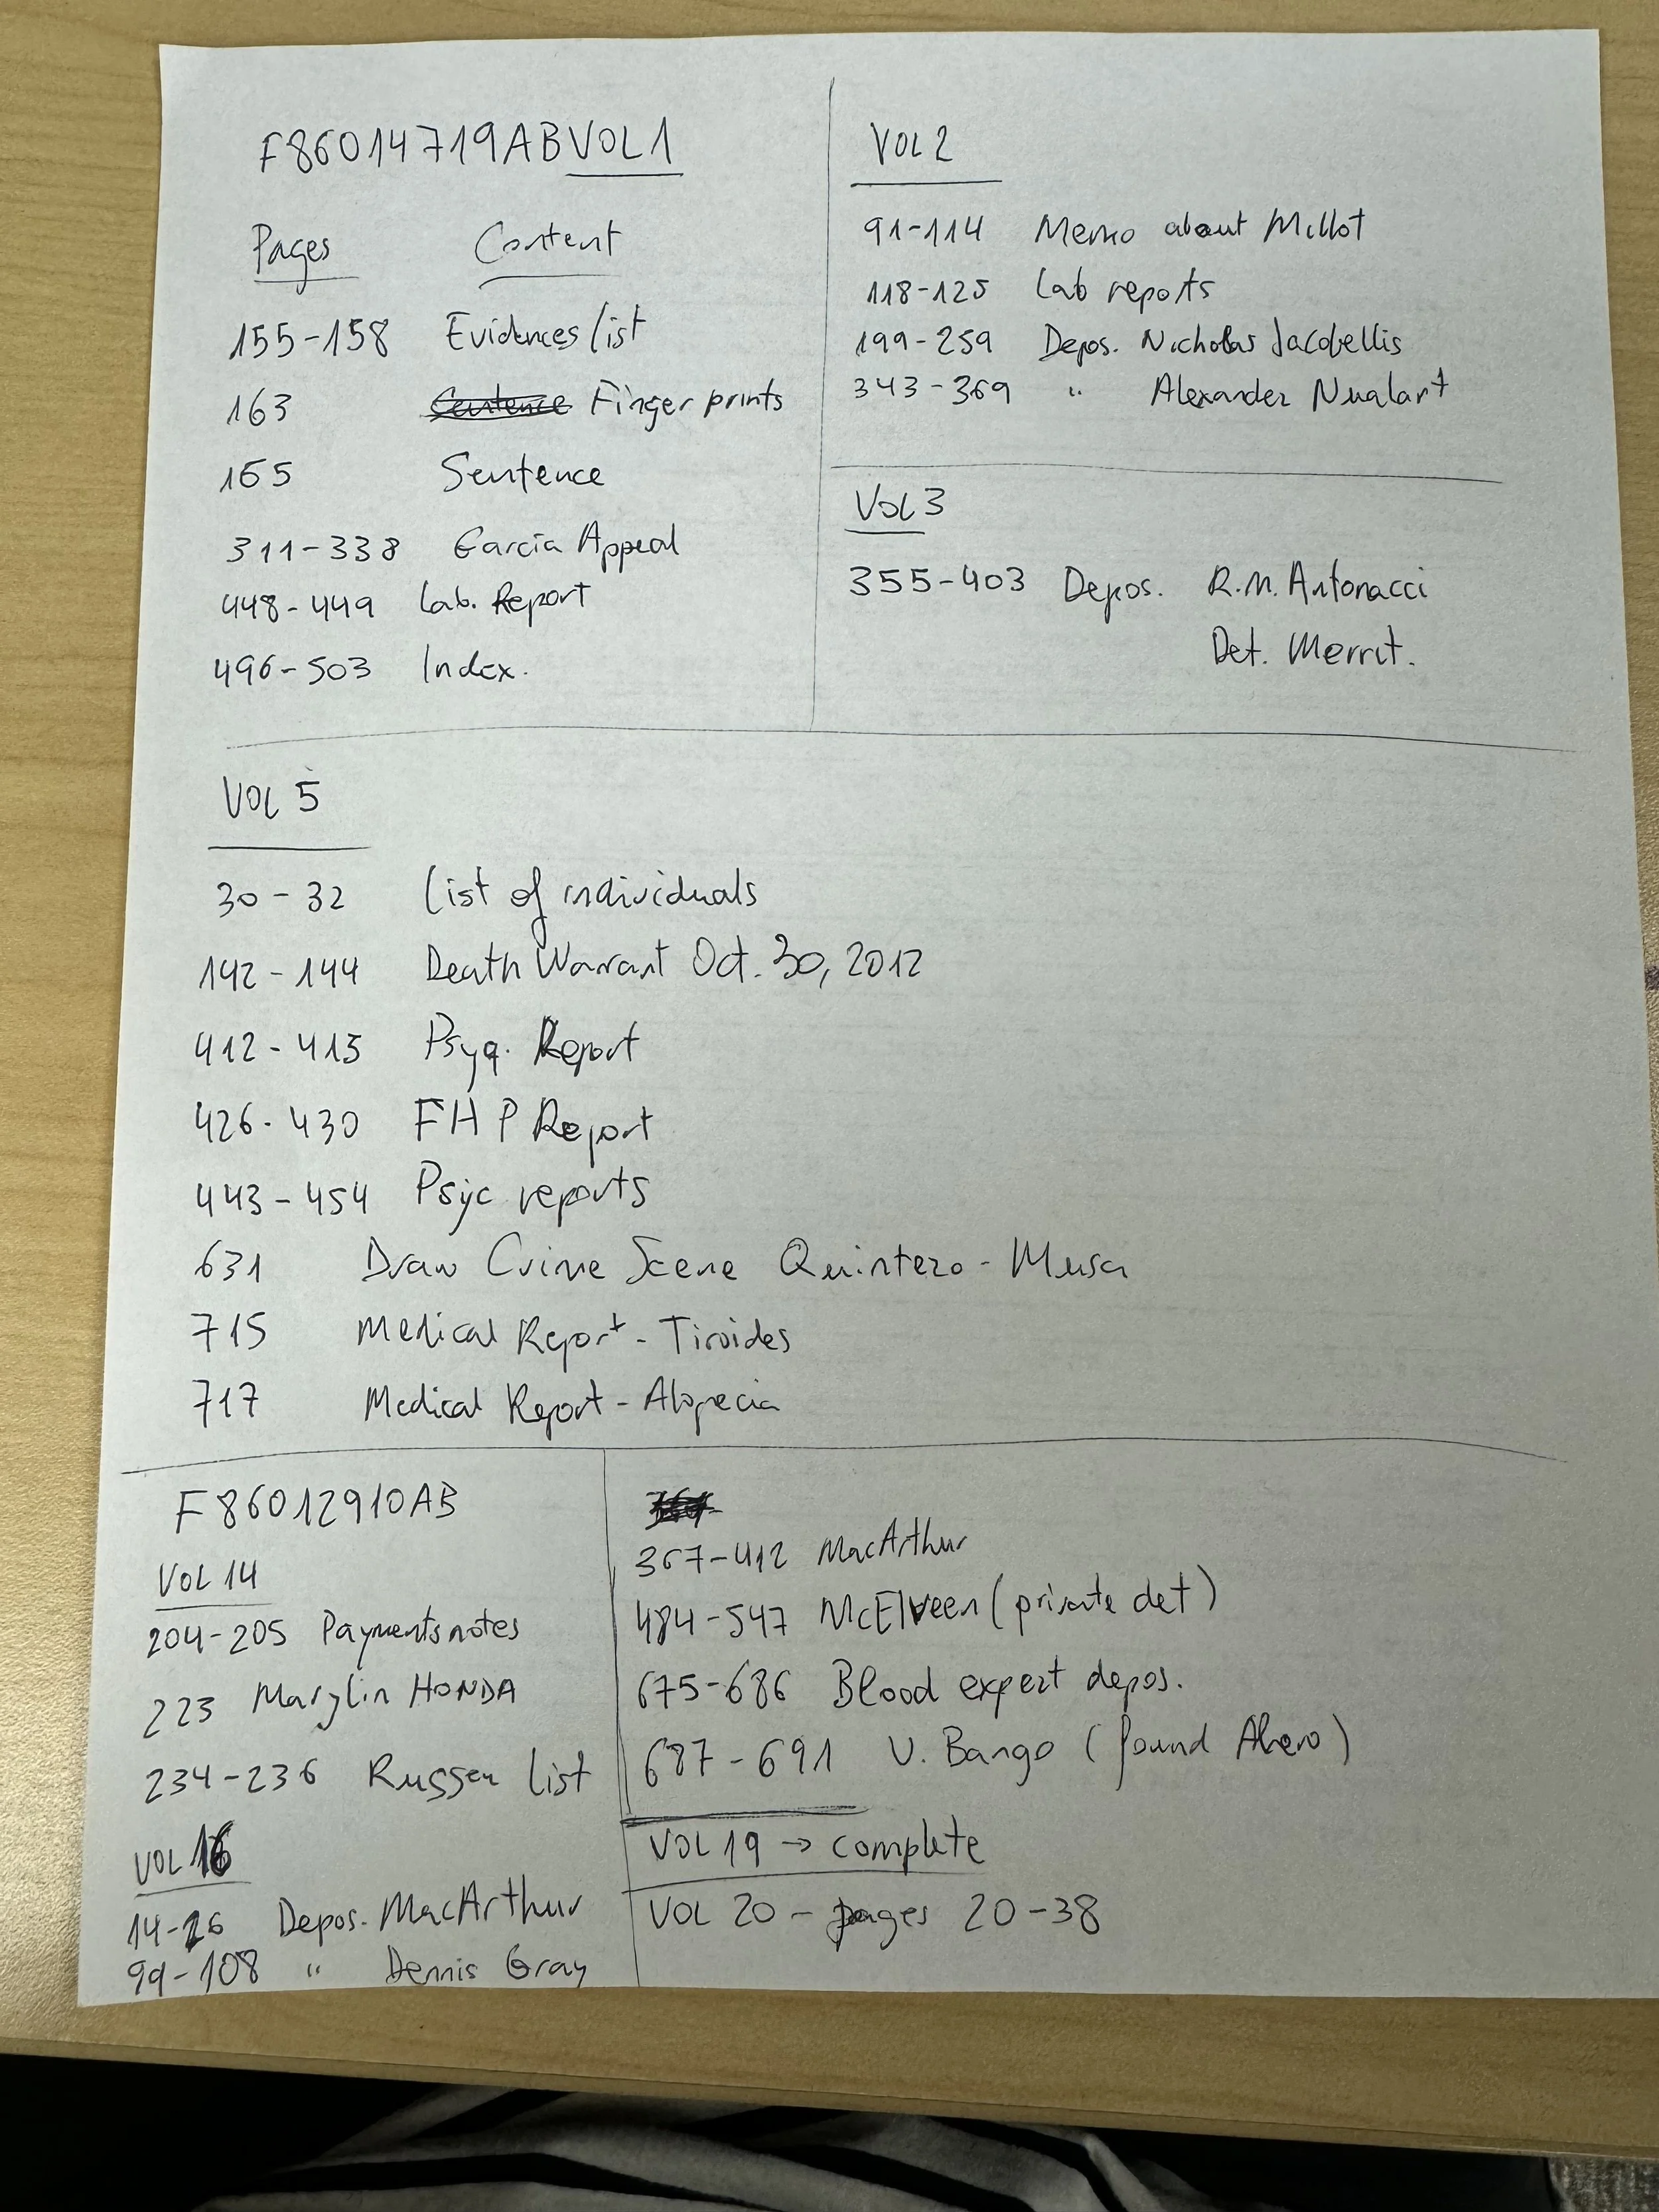 F86014719ABVOL1
Pages Content
155-158 Evidences list
163 Sentence Finger prints
165 Sentence
311-338 Garcia Appeal
448-449 Lab. Report
496-503 Index.
VOL 2
91-114 Memo about Millot
118-125 Lab reports
199-259 Depos. Nicholas Jacobellis
343-369 " Alexander Nualart
VOL 3
355-403 Depos. R.M. Antonacci
Det. Merrit.
VOL 5
30-32 List of individuals
142-144 Death Warrant Oct. 30, 2012
412-415 Psyq. Report
426-430 FHP Report
443-454 Psyc reports
631 Draw Crime Scene Quintero-Musa
715 Medical Report-Tiroides
717 Medical Report-Alopecia
F86012910AB
VOL 14
204-205 Payments notes
223 Marylin HONDA
234-236 Russen list
VOL 16
14-26 Depos. MacArthur
99-108 " Dennis Gray
367-412 MacArthur
484-547 McElveen (private det)
675-686 Blood expert depos.
687-691 V. Bango (found Alvero)
VOL 19 → complete
VOL 20 - pages 20-38